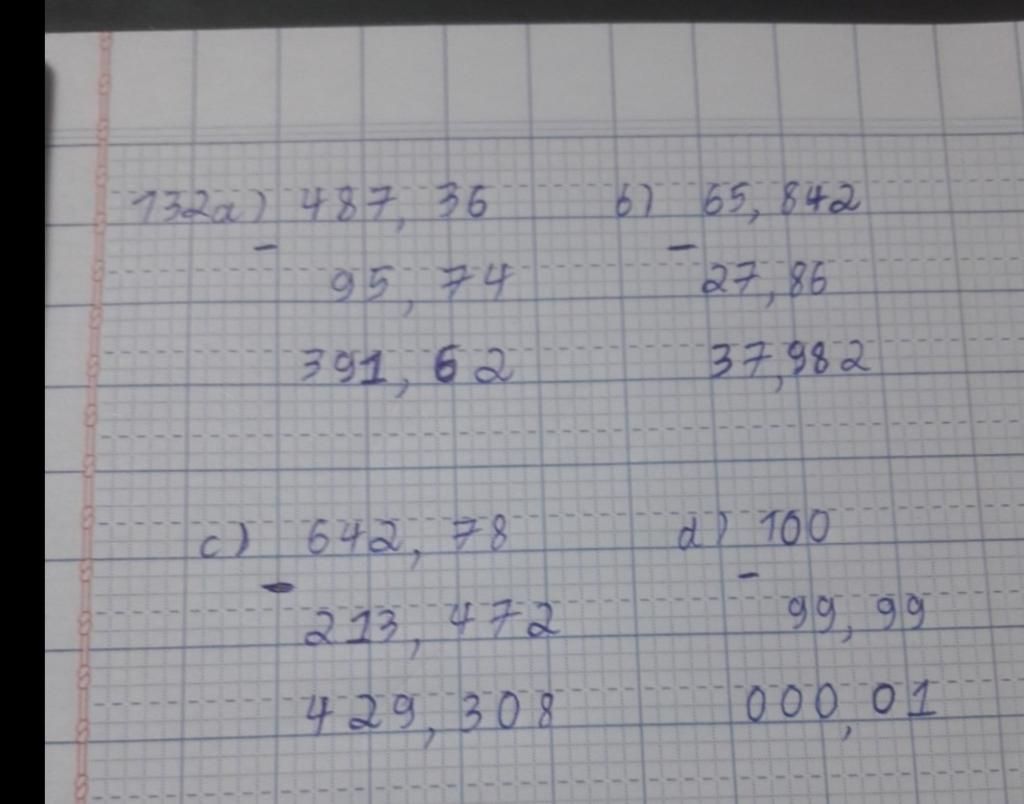 132a) 487,36 b) 65,842
- -
95,74 27,86
391,62 37,982
c) 642,78 d) 100
- -
213,472 99,99
429,308 000,01